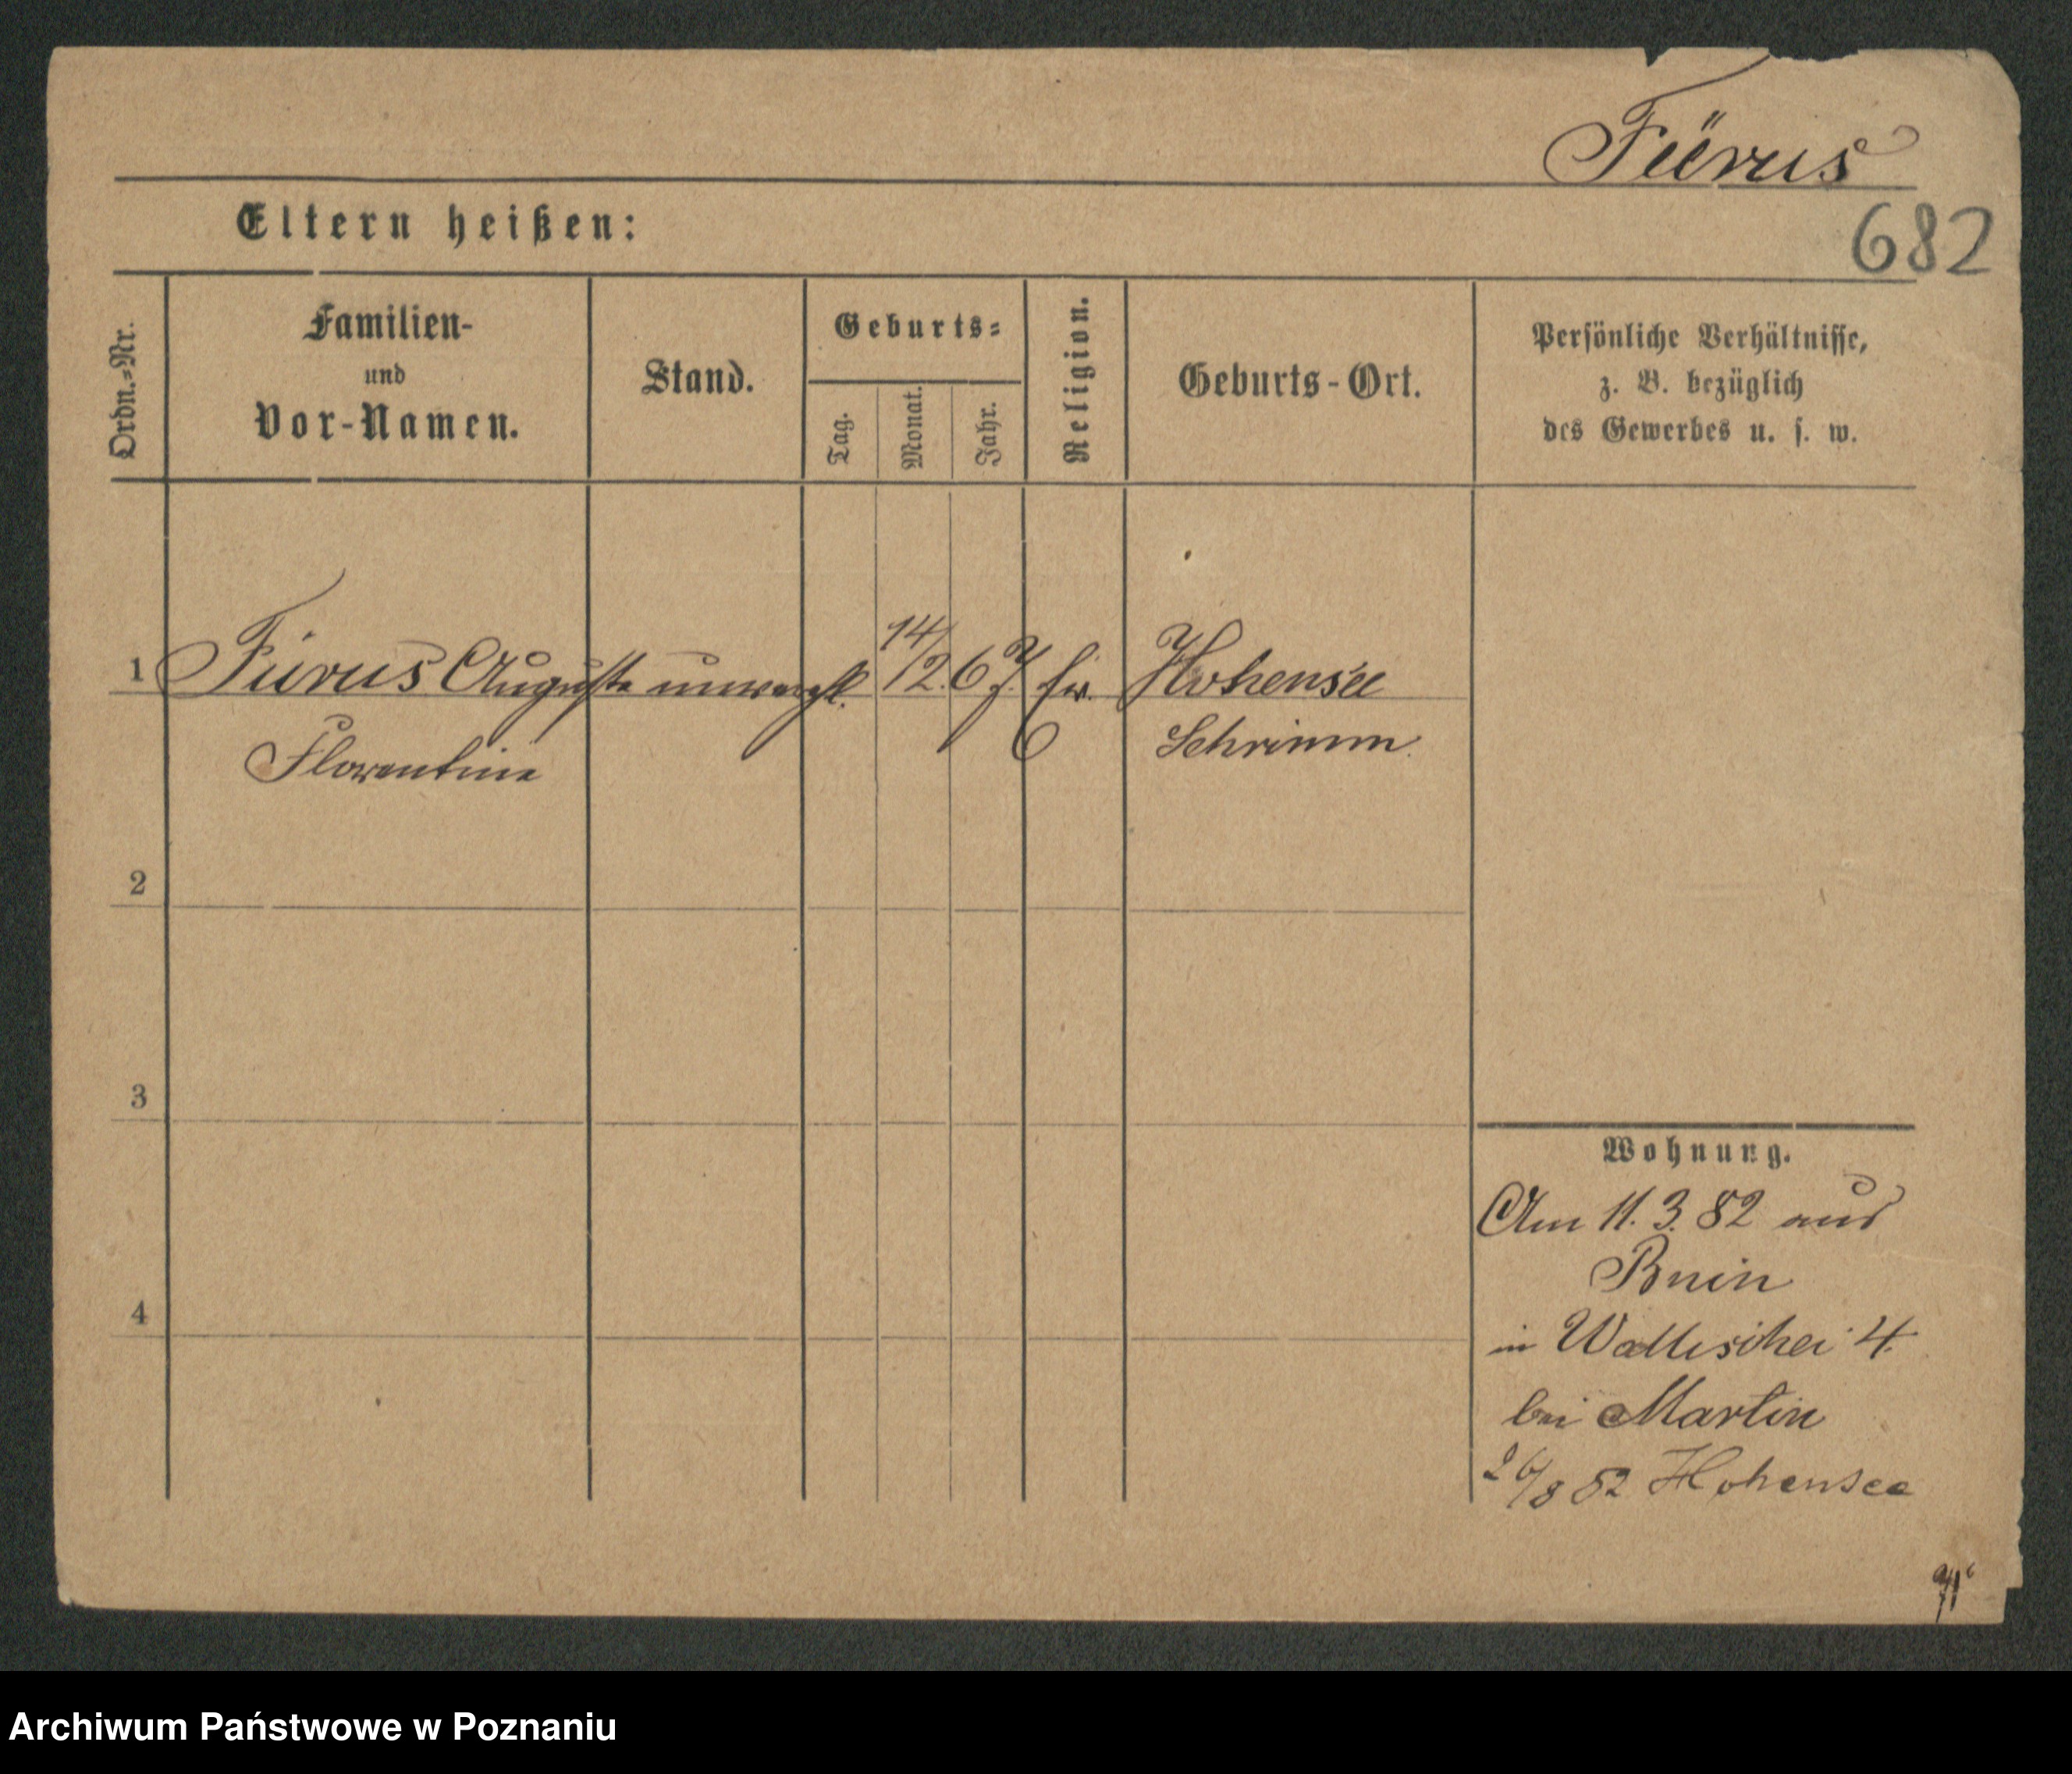 Fürus
682
Eltern heißen:
Ordn.-Nr.
Familien-
und
Vor-Namen.
Stand.
Geburts-
Tag.
Monat.
Jahr.
Religion.
Geburts-Ort.
Persönliche Verhältnisse,
z. B. bezüglich
des Gewerbes u. s. w.
1 Fürus Auguste unverehl. 14/2. 67. Hohensee
Florentine Schrimm.
2
3
4
Wohnung.
Am 11. 3. 82 aus
Bnin
in Wallischei 4.
bei Martin
26/8 82 Hohensee
Archiwum Państwowe w Poznaniu